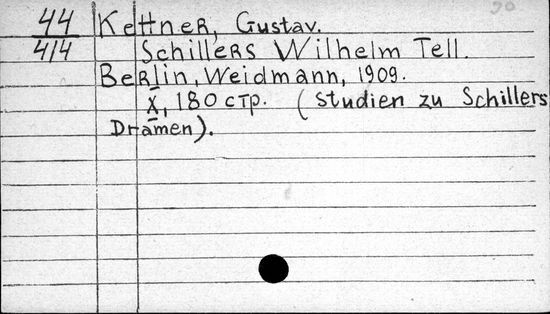 44 Kettner, Gustav.
4/4 Schillers Wilhelm Tell.
Berlin, Weidmann, 1909.
X, 180 стр. (Studien zu Schillers
Dramen).